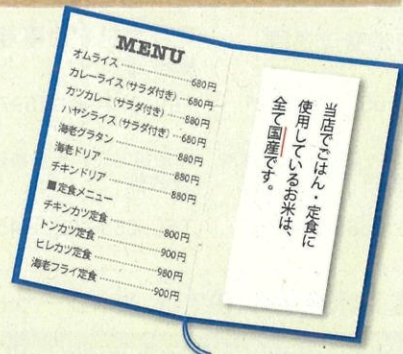 MENU
オムライス ……………… 680円
カレーライス (サラダ付き) … 680円
カツカレー (サラダ付き) …… 880円
ハヤシライス (サラダ付き) … 680円
海老グラタン …………… 880円
海老ドリア ……………… 880円
チキンドリア …………… 880円
■定食メニュー
チキンカツ定食 ………… 800円
トンカツ定食 …………… 900円
ヒレカツ定食 …………… 980円
海老フライ定食 ………… 900円
当店でごはん・定食に
使用しているお米は、
全て国産です。